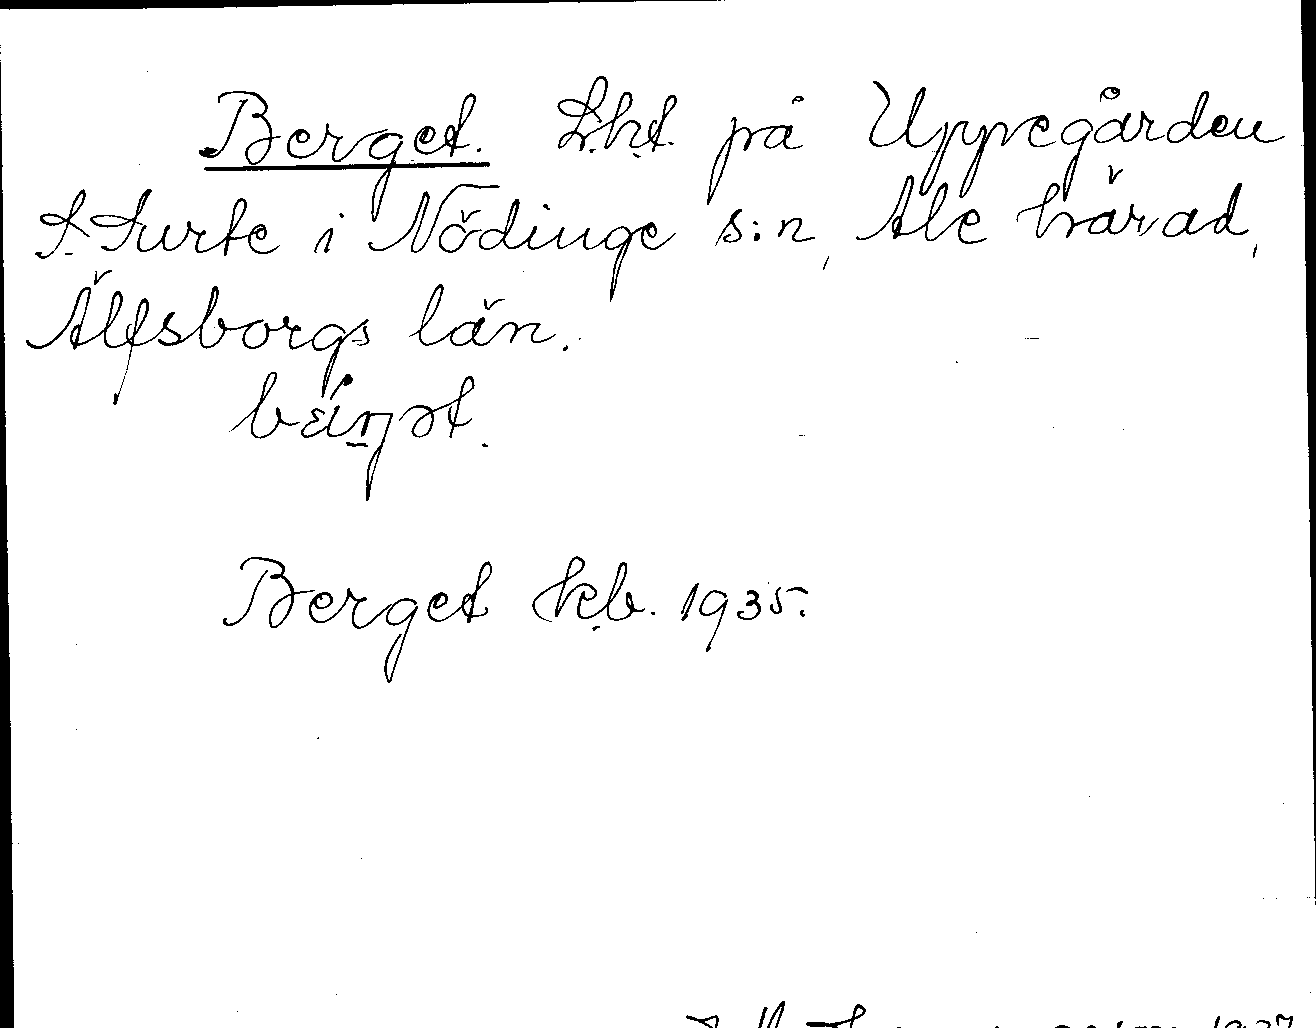 Berget. L.h.t. på Uppegården
S. Surte i Nödinge s:n, Ale härad,
Älfsborgs län.
Berget kb. 1935.